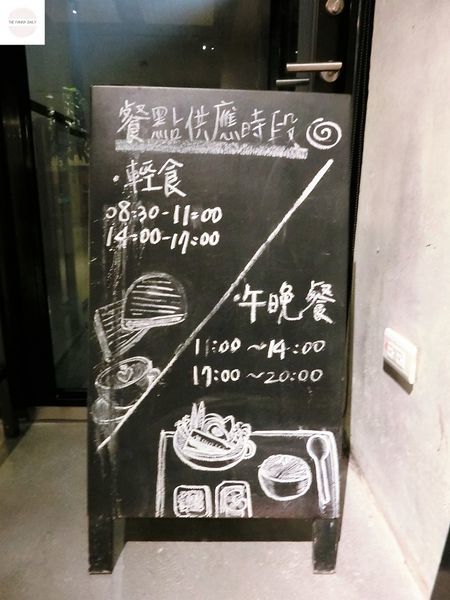 THE FUNNY DAILY
餐點供應時段
·輕食
08:30-11:00
14:00-17:00
·午晚餐
11:00~14:00
17:00~20:00